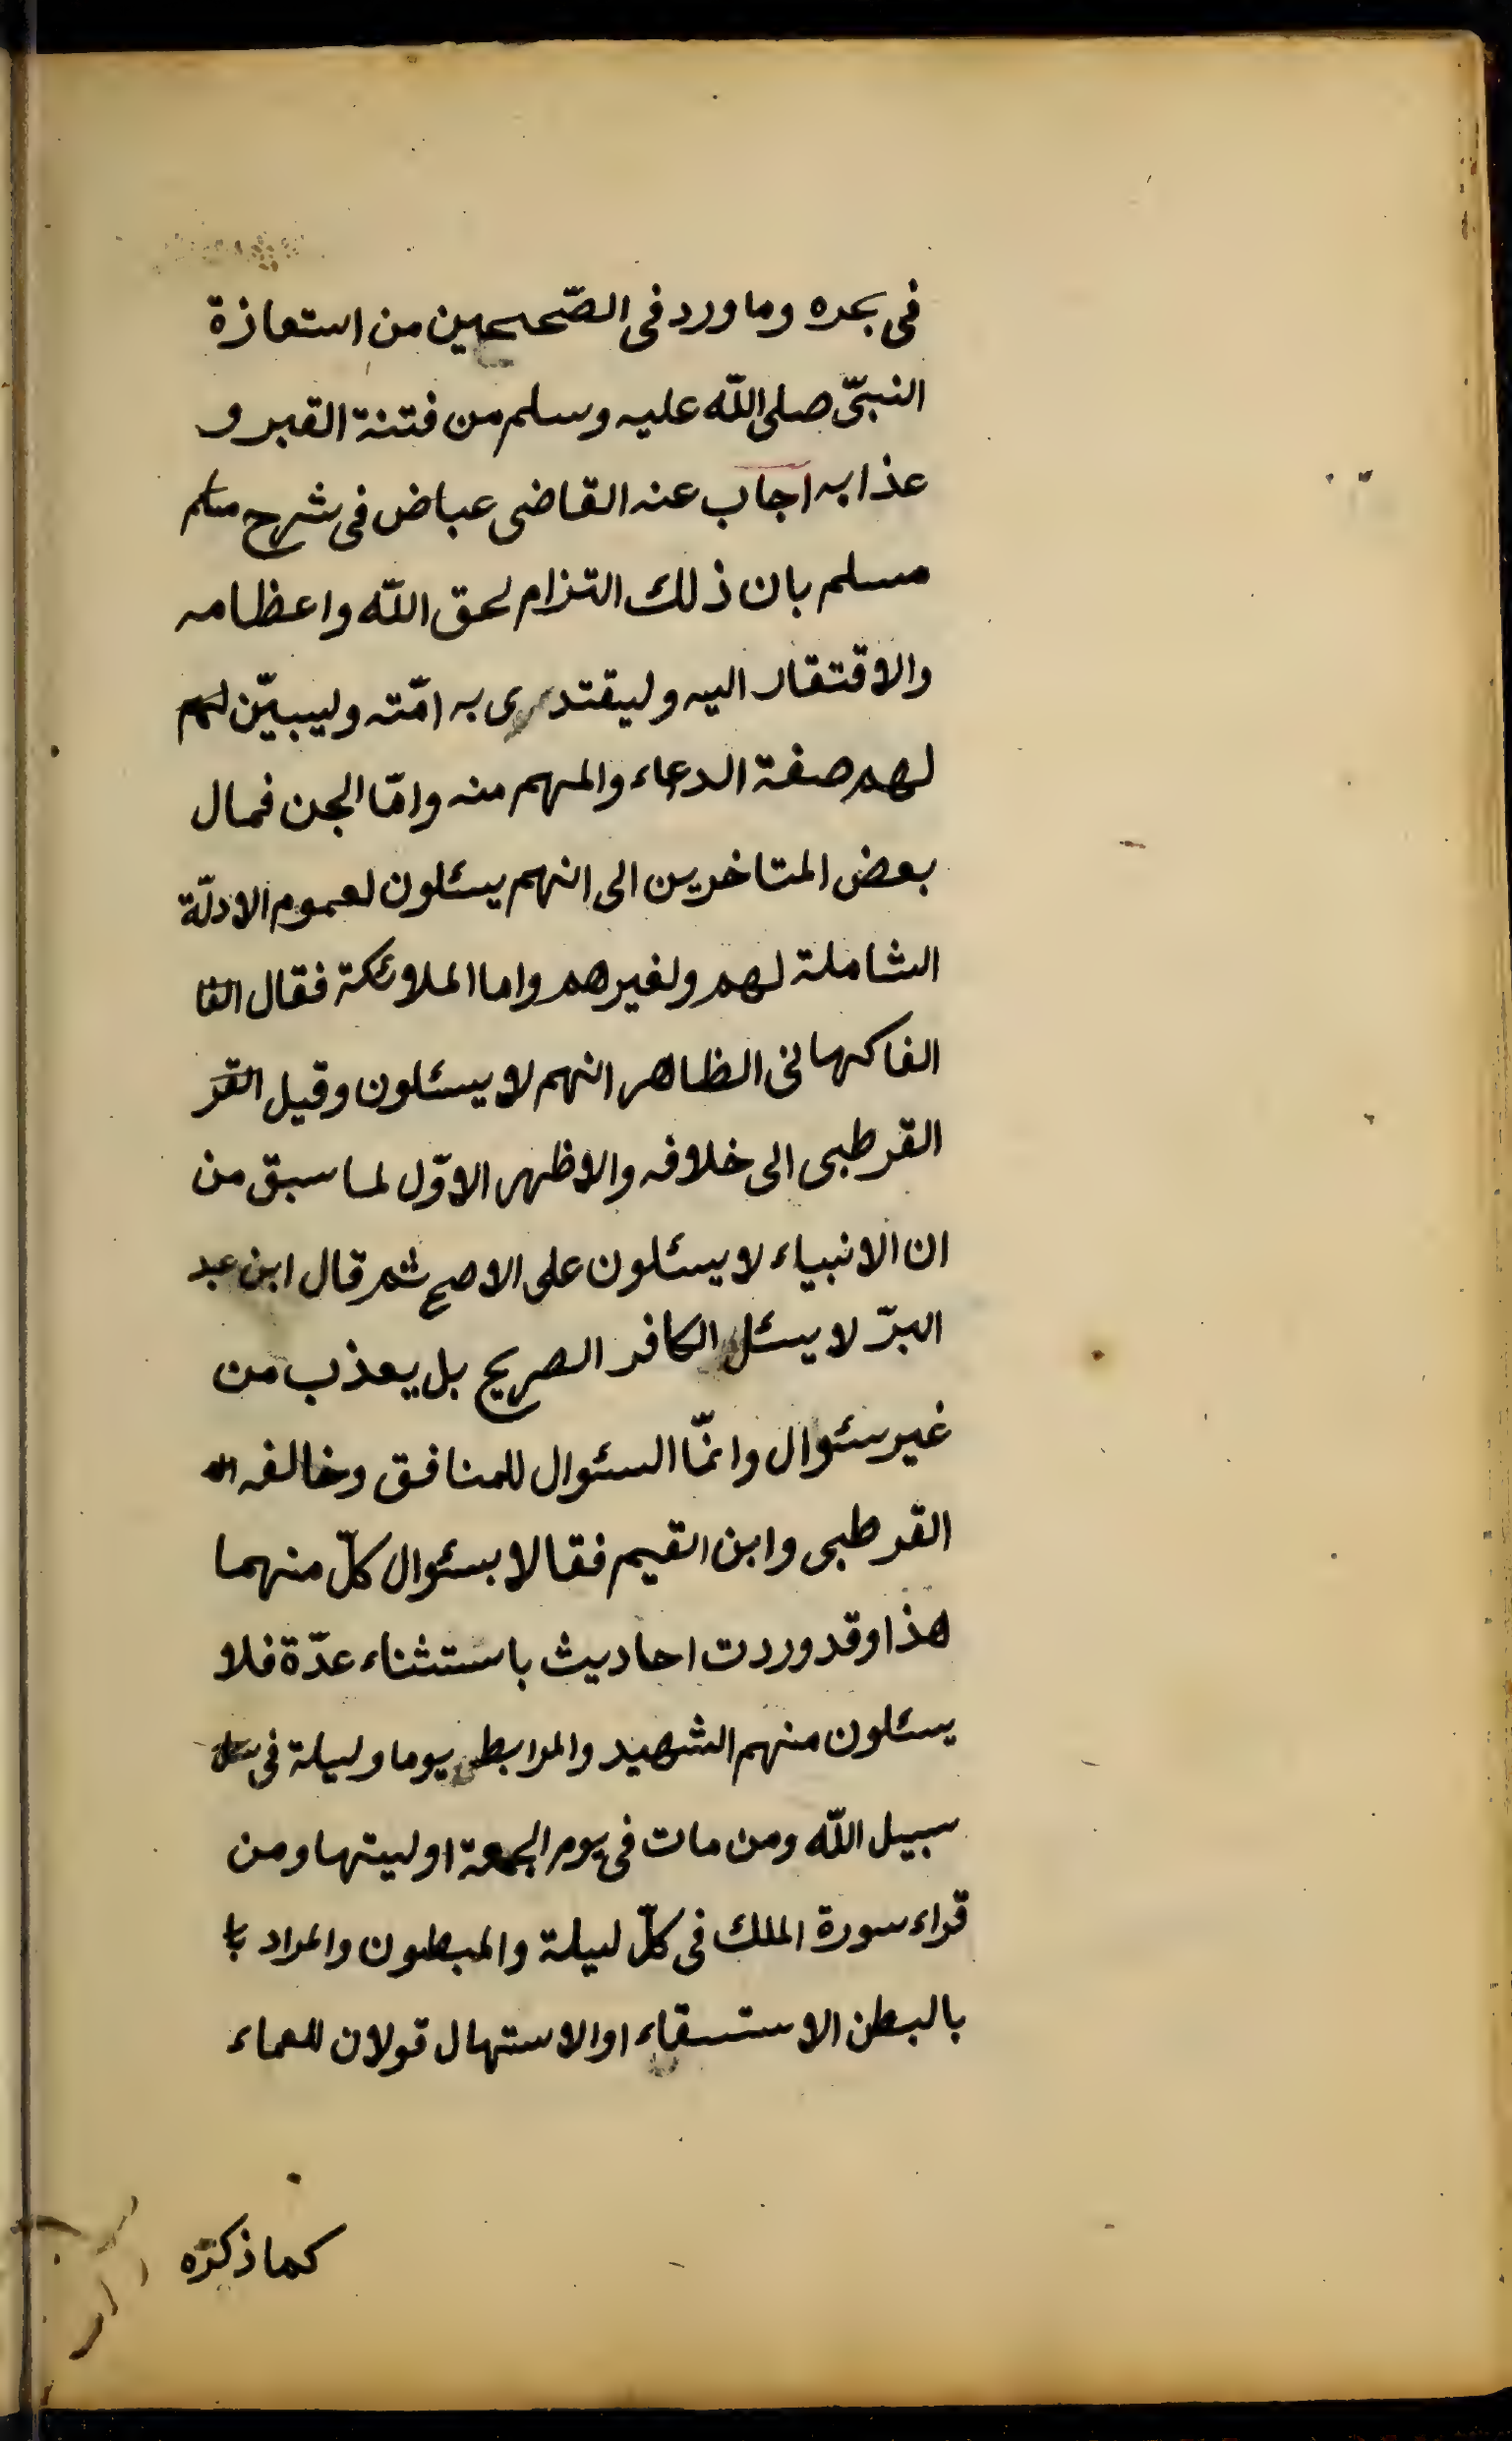 فى بحره وما ورد فى الصّحيحين من استعاذة
النبىّ صلى اللّه عليه وسلم من فتنة القبر و
عذابه اجاب عنه القاضى عياض فى شرح مسلم
مسلم بان ذلك التزام لحق اللّه واعظامه
والاقتقار اليه وليقتدى به امّته وليبيّن لهم
لهم صفة الدعاء والمهم منه وامّا الجن فمال
بعض المتاخرين الى انهم يسئلون لعموم الادلّة
الشاملة لهم ولغيرهم واما الملائكة فقال الفا
الفاكهانى الظاهر انهم لا يسئلون وقيل القر
القرطبى الى خلافه والاظهر الاوّل لما سبق من
ان الانبياء لا يسئلون على الاصح ثم قال ابن عبد
البرّ لا يسئل الكافر الصريح بل يعذب من
غير سئوال وانمّا السئوال للمنافق وخالفه
القرطبى وابن القيم فقالا بسئوال كلّ منهما
هذا وقد وردت احاديث باستثناء عدّة فلا
يسئلون منهم الشهيد والمرابط يوما وليلة فى
سبيل اللّه ومن مات فى يوم الجمعة او ليتها ومن
قراء سورة الملك فى كلّ ليلة والمبطون والمراد با
بالبطن الاستسقاء او الاستهال قولان للعماء
كما ذكره